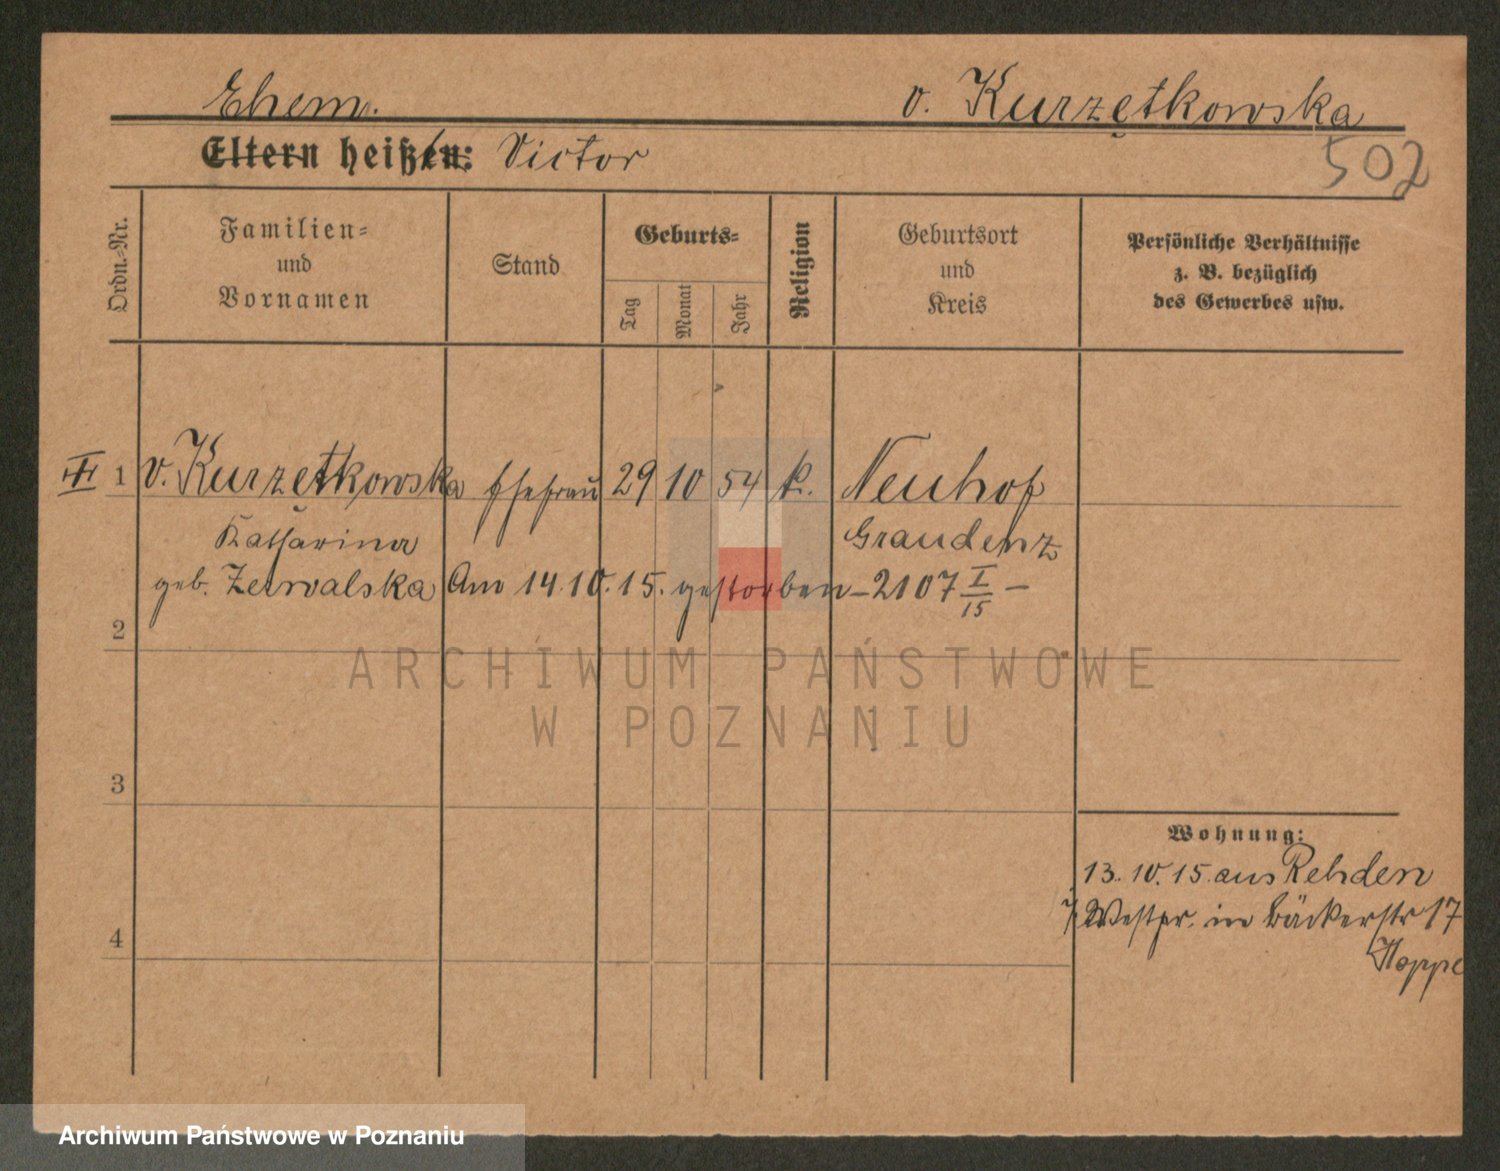 Ehem. v. Kurzętkowska
Eltern heißen: Victor
502
Ordn.-Nr.
Familien-
und
Vornamen
Stand
Geburts-
Tag
Monat
Jahr
Religion
Geburtsort
und
Kreis
Persönliche Verhältnisse
z. B. bezüglich
des Gewerbes usw.
III 1 v. Kurzętkowska Ehefrau 29 10 54 k. Neuhof
Katharina Graudenz
geb. Zerwalska Am 14.10.15. gestorben – 2107 I/15 –
2
3
4
Wohnung:
13.10.15. aus Rehden
i/ Westpr. in Bäckerstr 17
Hoppe
ARCHIWUM PAŃSTWOWE
W POZNANIU
Archiwum Państwowe w Poznaniu